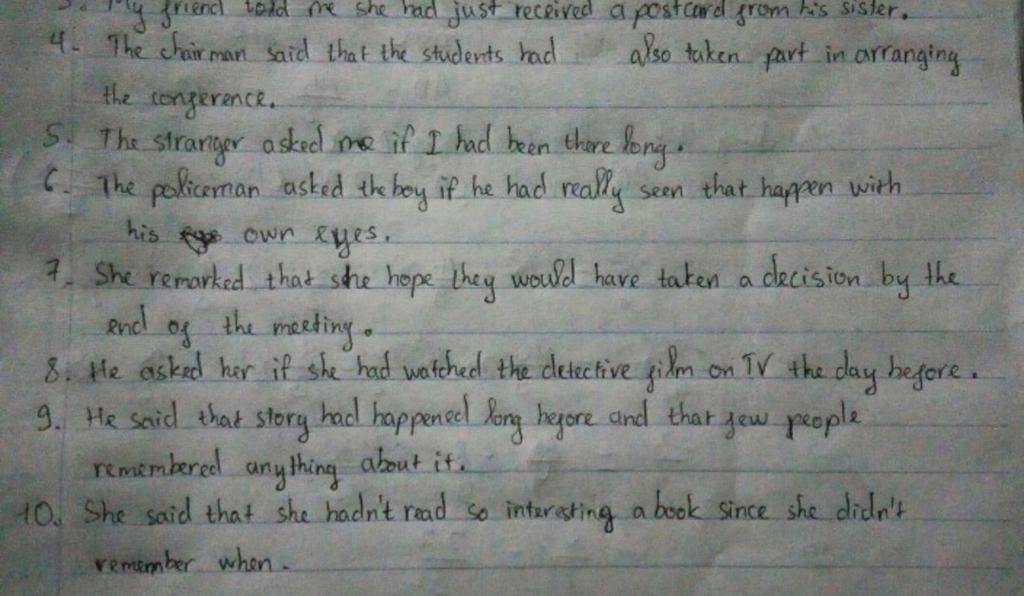 3. My friend told me she had just received a postcard from his sister.
4. The chairman said that the students had also taken part in arranging
the conference.
5. The stranger asked me if I had been there long.
6. The policeman asked the boy if he had really seen that happen with
his own eyes.
7. She remarked that she hope they would have taken a decision by the
end of the meeting.
8. He asked her if she had watched the detective film on TV the day before.
9. He said that story had happened long before and that few people
remembered anything about it.
10. She said that she hadn't read so interesting a book since she didn't
remember when.